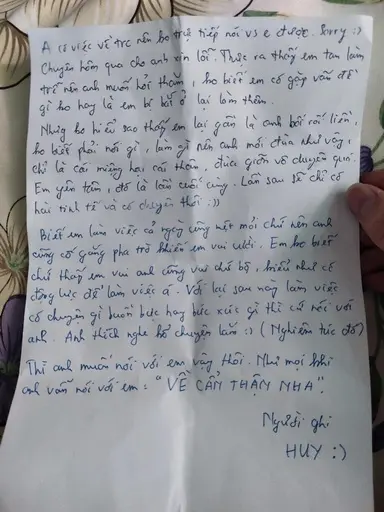 A có việc về trc nên ko trực tiếp nói vs e được. Sorry :)
Chuyện hôm qua cho anh xin lỗi. Thực ra thấy em tan làm
trễ nên anh muốn hỏi thăm, ko biết em có gặp vấn đề
gì ko hay là em bị bắt ở lại làm thêm.
Nhưng ko hiểu sao thấy em lại gần là anh bối rối liền,
ko biết phải nói gì, làm gì nên anh mới đùa như vậy,
chỉ là cái miệng hại cái thân, đùa giỡn vô duyên quá.
Em yên tâm, đó là lần cuối cùng. Lần sau sẽ chỉ có
hài tinh tế và có duyên thôi :))
Biết em làm việc cả ngày cũng mệt mỏi chứ nên anh
cũng cố gắng pha trò khiến em vui cười. Em ko biết
chứ thấy em vui anh cũng vui chứ bộ, kiểu như có
động lực để làm việc á. Với lại sau này làm việc
có chuyện gì buồn bực hay bức xúc gì thì cứ nói với
anh. Anh thích nghe kể chuyện lắm :) (Nghiêm túc đó)
Thì anh muốn nói với em vậy thôi. Như mọi khi
anh vẫn nói với em: "VỀ CẨN THẬN NHA".
Người ghi
HUY :)